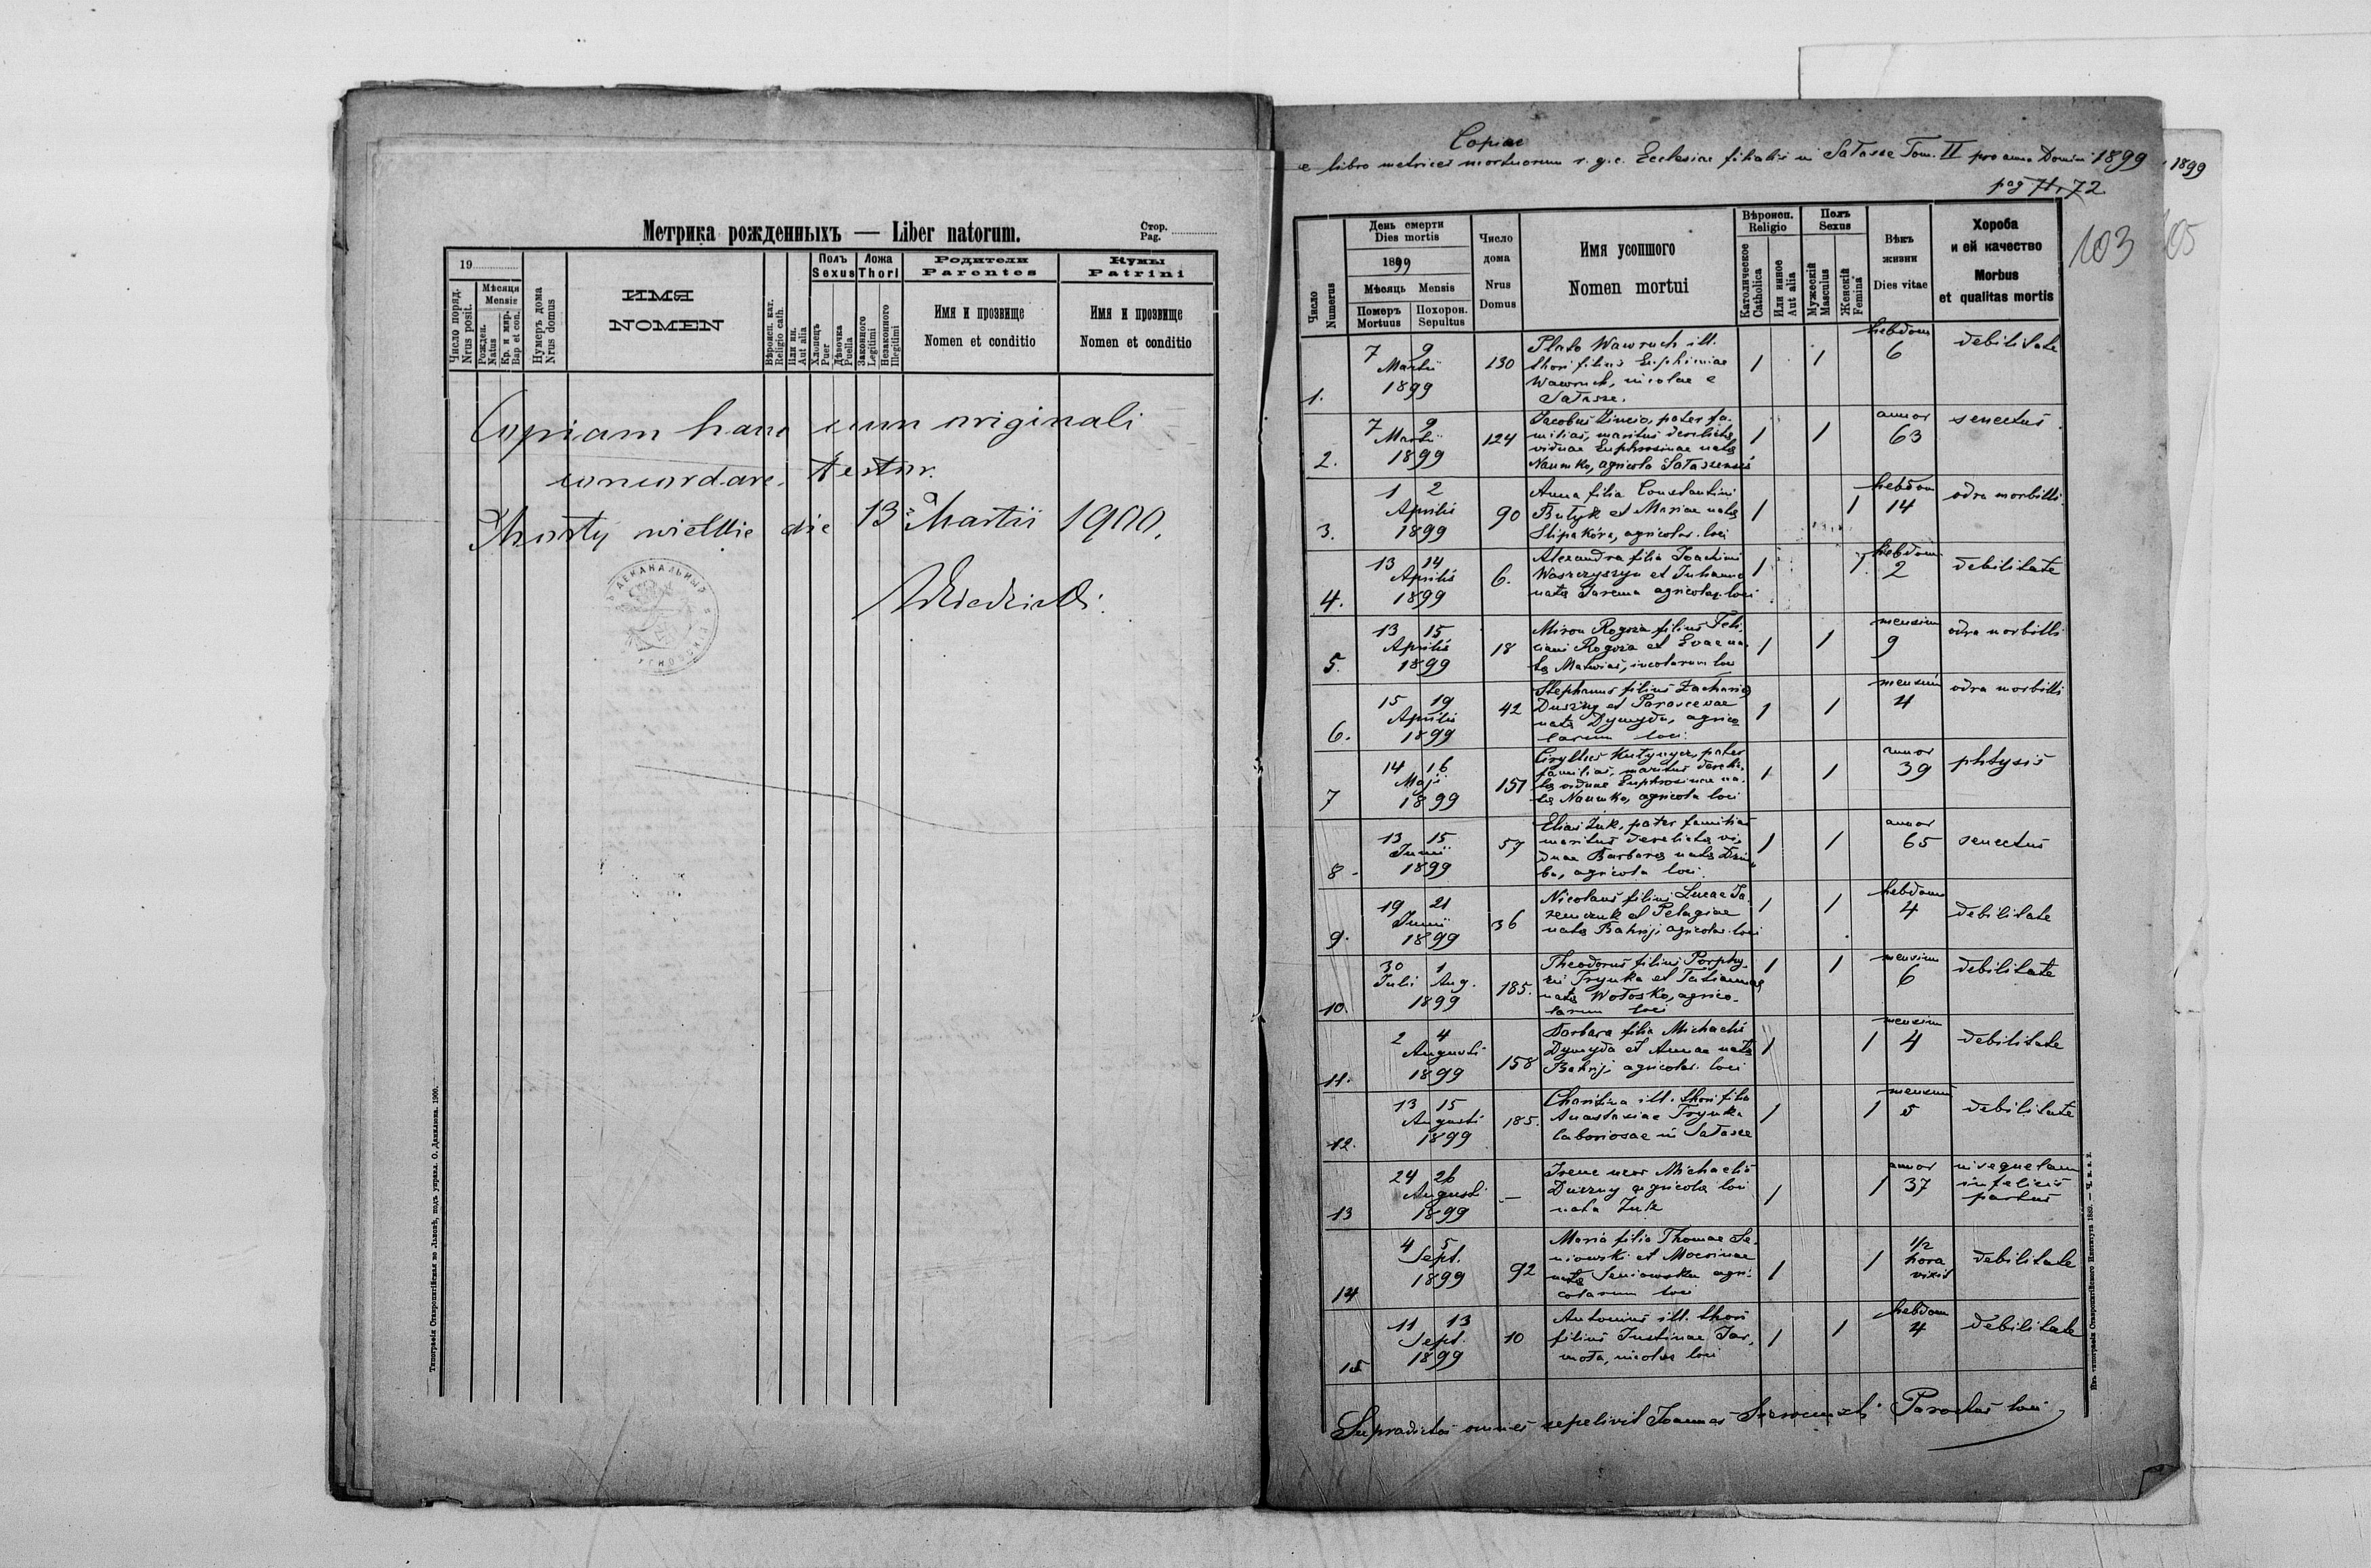 Метрика рожденныхъ — Liber natorum.
Стор.
Pag.
19
Число поряд.
Nrus posit.
Мѣсяця
Mensis
Рожден.
Natus
Кр. и мир.
Bap et con.
Нумеръ дома
Nrus domus
ИМЯ
NOMEN
Вѣроисп. кат.
Religio cath.
Или ин.
Aut alia
Полъ
Sexus
Хлопецъ
Puer
Дѣвочка
Puella
Ложа
Thori
Законного
Legitimi
Незаконного
Illegitimi
Родители
Parentes
Имя и прозвище
Nomen et conditio
Кумы
Patrini
Имя и прозвище
Nomen et conditio
Copiam hanc cum originali
concordare testor.
wielkie die 13 Martii 1900.
Типографія Ставропигійская во Львовѣ, подъ управл. О. Данилюка. 1900.
Copiae
e libro metrices mortuorum r. g. c. Ecclesiae filialis in Sałasze Tom. II pro anno Domini 1899
1899
pag 71, 72
103
05
Число
Numerus
День смерти
Dies mortis
1899
Мѣсяць Mensis
Померъ
Mortuus
Похорон.
Sepultus
Число
дома
Nrus
Domus
Имя усопшого
Nomen mortui
Вѣроисп.
Religio
Католическое
Catholica
Или инное
Aut alia
Полъ
Sexus
Мужескій
Masculus
Женскій
Femina
Вѣкъ
жизни
Dies vitae
Хороба
и ей качество
Morbus
et qualitas mortis
1.
7 9
Martii
1899
130
Plato Wawruch ill.
thori filius Euphimiae
Wawruch, incolae e
Sałasze.
1 1
hebdom
6
debilitate
2.
7 9
Martii
1899
124
Jacobus Zincio, pater fa-
milias, maritus derelictae
viduae Euphrosinae natae
Naumko, agricola Sałaszensis
1 1
annor
63
senectus
3.
1 2
Aprilis
1899
90
Anna filia Constantini
Butyk et Mariae natae
Slipakóra, agricolar. loci
1 1
hebdom
14
odra morbilli
4.
13 14
Aprilis
1899
6.
Alexandra filia Joachimi
Waszczyszyn et Julianne
natae Jarema agricolar. loci
1 1
hebdom
2
debilitate
5.
13 15
Aprilis
1899
18
Miron Rogoza filius Feli-
ciani Rogoza et Evae na-
tae Matwias, incolarum loci
1 1
mensium
9
odra morbilli
6.
15 19
Aprilis
1899
42
Stephanus filius Zachariae
et Parascevae
natae Dymyda, agrico
larum loci
1 1
mensium
4
odra morbilli
7
14 16
Maji
1899
151
Cryllus Kutynycz, pater
familias, maritus derelic-
tae viduae Euphrosinae na-
tae Naumko, agricola loci
1 1
annor
39
phtysis
8.
13 15
Junii
1899
57
Elias Zuk, pater familias
maritus derelictae vi-
duae Barbarae natae
ba, agricola loci.
1 1
annor
65
senectus
9.
19 21
Junii
1899
36
Nicolaus filius Lucae Ja-
remczuk et Pelagiae
natae Bahrij agricolar. loci
1 1
hebdom
4
debilitate
10.
30 1
Julii Aug.
1899
185.
Theodorus filius Porphy-
rii Trynka et Tatiannae
natae Wołosko, agrico-
larum loci
1 1
mensium
6
debilitate
11.
2 4
Augusti
1899
158
Barbara filia Michaelis
Dymyda et Annae natae
Bahrij agricolar. loci
1 1
mensium
4
debilitate
12.
13 15
Augusti
1899
185.
Charitina ill. thori filia
Anastasiae Trynka
laboriosae in Sałasze
1 1
mensium
5
debilitate
13
24 26
Augusti
1899
—
Irene uxor Michaelis
agricolae loci
nata Zuk
1 1
annor
37
in sequelam
infelicis
partus
14
4 5
Sept.
1899
92
Maria filia Thomae Se-
niowski et Macrinae
natae Seniowska agri-
colarum loci
1 1
1/2
hora
vixit
debilitate
15
11 13
Sept.
1899
10
Antonius ill. thori
filius Justinae Jar-
mota, incolae loci
1 1
hebdom
4
debilitate
Supradictos omnes sepelivit Joannes Parochus loci
Изъ типографіи Ставропигійского Института 1889.